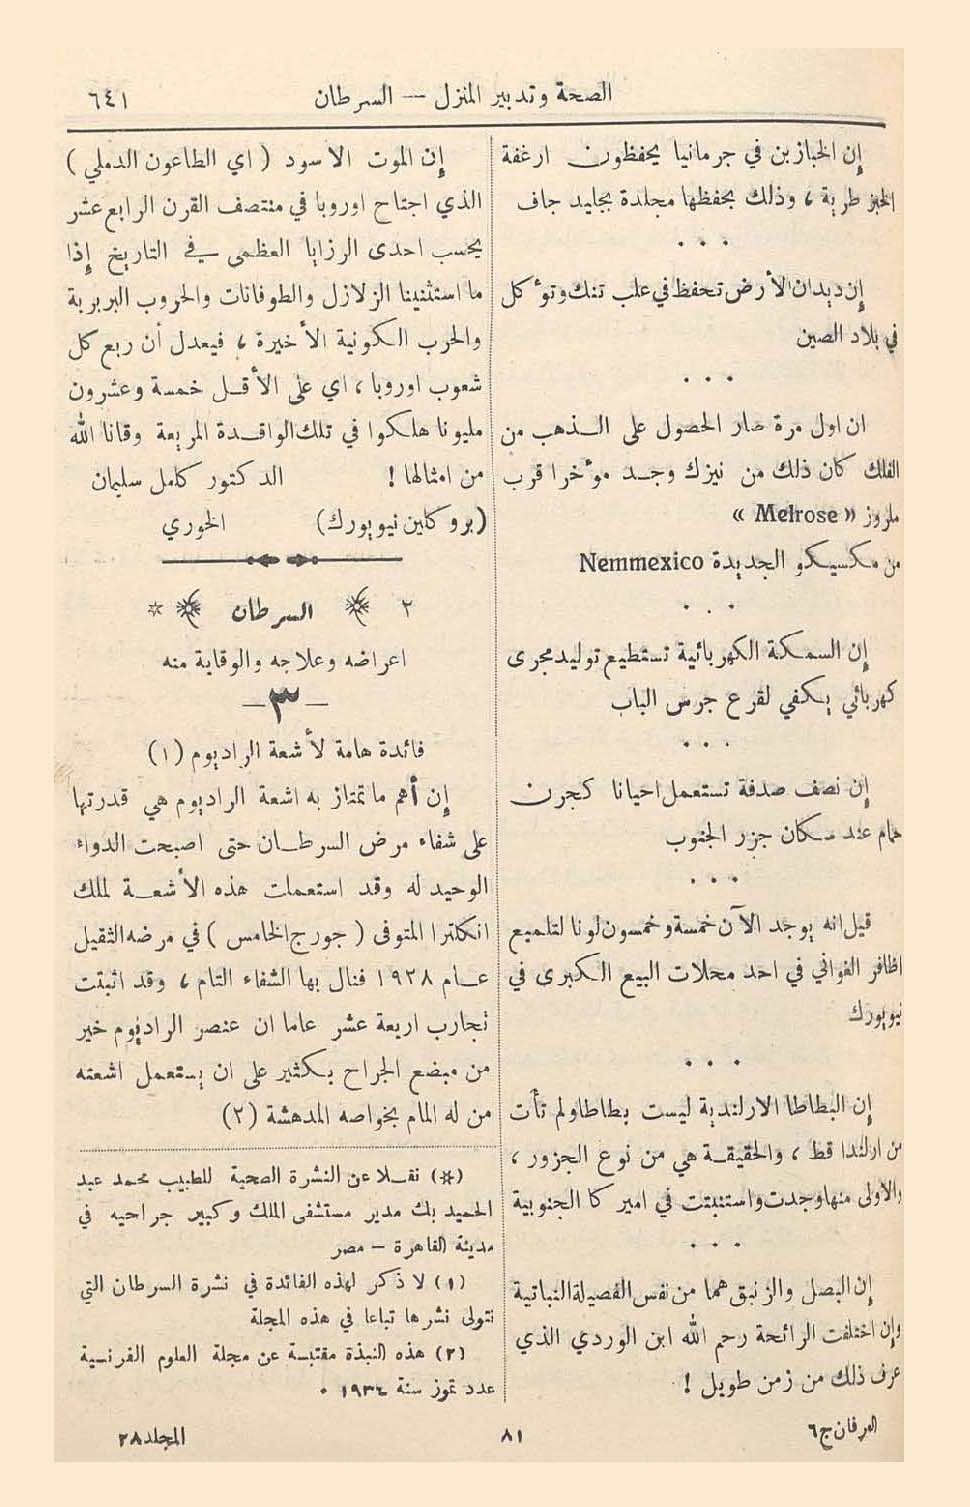 الصحة وتدبير المنزل — السرطان
٦٤١
إن الخبازين في جرمانيا يحفظون ارغفة
الخبز طرية ، وذلك بحفظها مجلدة بجليد جاف
• • •
إن ديدان الأرض تحفظ في علب تنك وتؤكل
في بلاد الصين
• • •
ان اول مرة صار الحصول على الذهب من
الفلك كان ذلك من نيزك وجد مؤخرا قرب
ملروز « Melrose »
من مكسيكو الجديدة Nemmexico
• • •
إن السمكة الكهربائية تستطيع توليد مجرى
كهربائي يكفي لقرع جرس الباب
• • •
إن نصف صدفة تستعمل احيانا كجرن
حمام عند سكان جزر الجنوب
• • •
قيل انه يوجد الآن خمسة وخمسون لونا لتلميع
اظافر الغواني في احد محلات البيع الكبرى في
نيويورك
• • •
إن البطاطا الارلندية ليست بطاطا ولم تأت
من ارلندا قط ، والحقيقة هي من نوع الجزور ،
والأولى منها وجدت واستنبتت في اميركا الجنوبية
• • •
إن البصل والزنبق هما من نفس الفصيلة النباتية
وإن اختلفت الرائحة رحم الله ابن الوردي الذي
عرف ذلك من زمن طويل !
إن الموت الاسود ( اي الطاعون الدملي )
الذي اجتاح اوروبا في منتصف القرن الرابع عشر
يحسب احدى الرزايا العظمى في التاريخ إذا
ما استثنينا الزلازل والطوفانات والحروب البربرية
والحرب الكونية الأخيرة ، فيعدل أن ربع كل
شعوب اوروبا ، اي على الأقل خمسة وعشرون
مليونا هلكوا في تلك الوافدة المريعة وقانا الله
من امثالها ! الدكتور كامل سليمان
(بروكلين نيويورك) الخوري
٢ السرطان *
اعراضه وعلاجه والوقاية منه
— ٣ —
فائدة هامة لأشعة الراديوم (١)
إن أهم ما تمتاز به اشعة الراديوم هي قدرتها
على شفاء مرض السرطان حتى اصبحت الدواء
الوحيد له وقد استعملت هذه الأشعة لملك
انكلترا المتوفى ( جورج الخامس ) في مرضه الثقيل
عام ١٩٢٨ فنال بها الشفاء التام ، وقد اثبتت
تجارب اربعة عشر عاما ان عنصر الراديوم خير
من مبضع الجراح بكثير على ان يستعمل اشعته
من له المام بخواصه المدهشة (٢)
(*) نقلا عن النشرة الصحية للطبيب محمد عبد
الحميد بك مدير مستشفى الملك وكبير جراحيه في
مدينة القاهرة – مصر
(١) لا ذكر لهذه الفائدة في نشرة السرطان التي
نتولى نشرها تباعا في هذه المجلة
(٢) هذه النبذة مقتبسة عن مجلة العلوم الفرنسية
عدد تموز سنة ١٩٣٤ .
العرفان ج٦
٨١
المجلد ٢٨